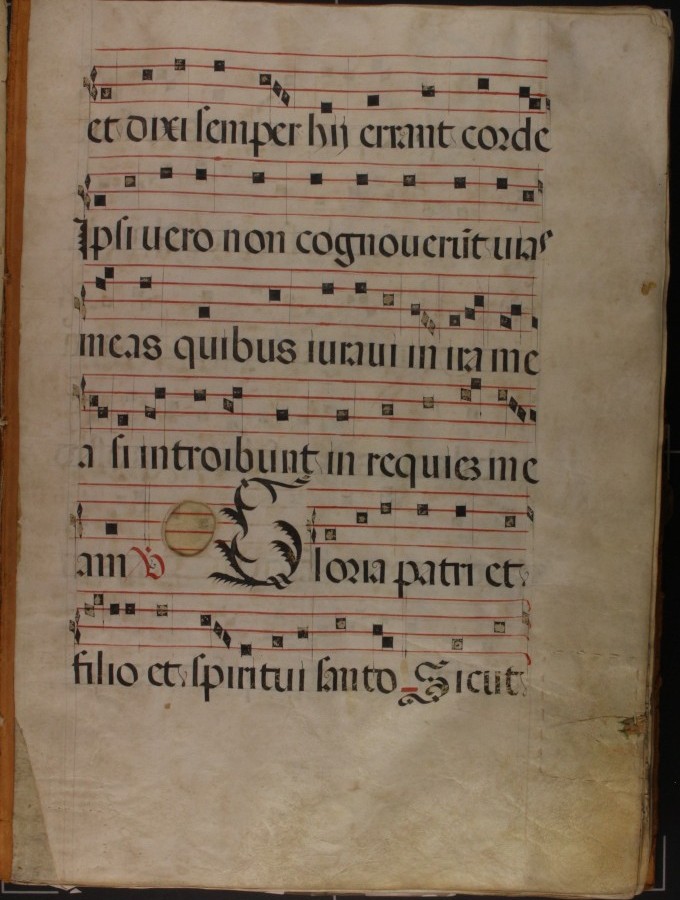 et dixi semper hij errant corde
Ipsi uero non cognouerũt uias
meas quibus iuraui in ira me
a si introibunt in requiez me
am
Gloria patri et
filio et spiritui santo Sicut